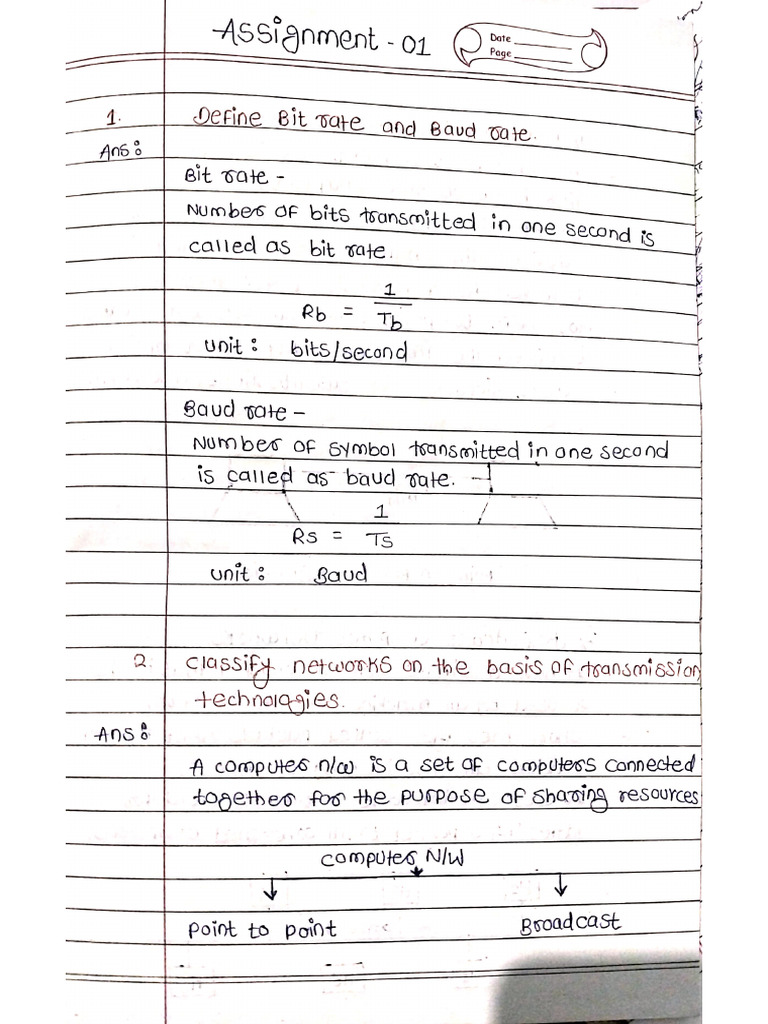 Assignment - 01
Date
Page
1. Define Bit rate and Baud rate.
Ans:
Bit rate -
Number of bits transmitted in one second is
called as bit rate.
Rb = 1/Tb
Unit: bits/second
Baud rate -
Number of symbol transmitted in one second
is called as baud rate.
Rs = 1/Ts
Unit: Baud
2. Classify networks on the basis of transmission
technologies.
Ans:
A computer n/w is a set of computers connected
together for the purpose of sharing resources
Computer N/W
Point to point Broadcast